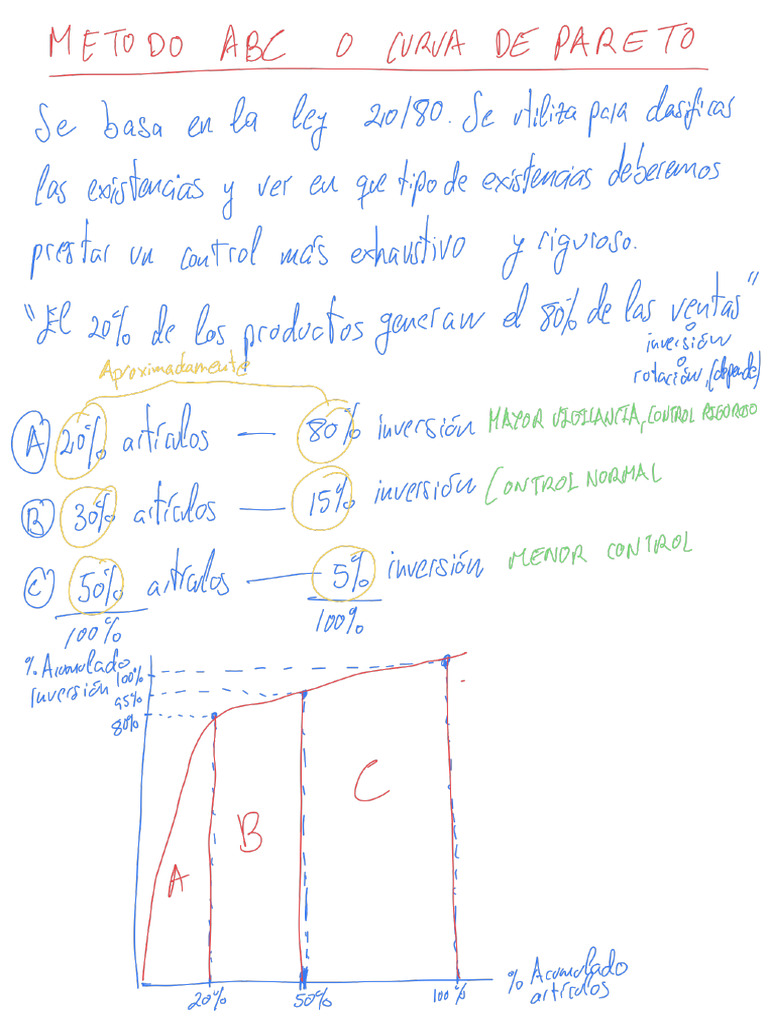 METODO ABC O CURVA DE PARETO
Se basa en la ley 20/80. Se utiliza para clasificas
las existencias y ver en que tipo de existencias deberemos
prestar un control más exhaustivo y riguroso.
"El 20% de los productos generan el 80% de las ventas"
o
inversión
o
rotación, (depende)
Aproximadamente
A 20% artículos — 80% inversión MAYOR VIGILANCIA, CONTROL RIGOROSO
B 30% artículos — 15% inversión CONTROL NORMAL
C 50% artículos — 5% inversión MENOR CONTROL
100% 100%
% Acumulado
inversión
100%
95%
80%
A
B
C
20% 50% 100%
% Acumulado
artículos